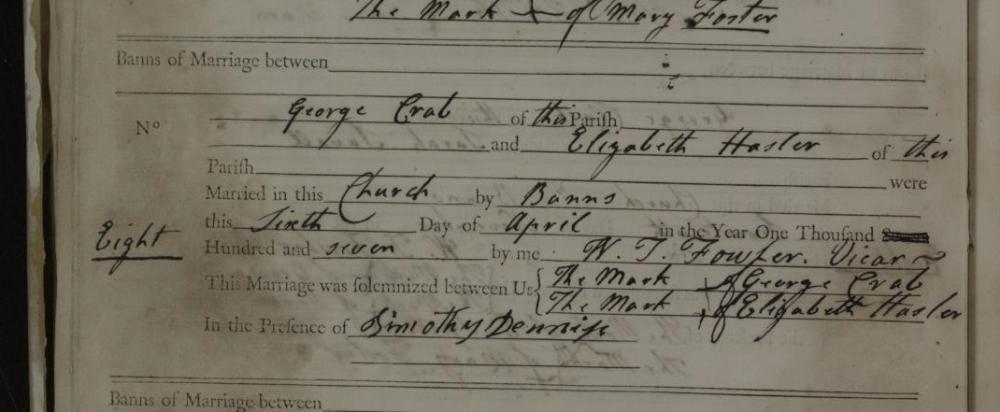 The Mark X of Mary Foster
Banns of Marriage between
George Crab of this Parish
No
and Elizabeth Hasler of this
Parish were
Married in this Church by Banns
this Sixth Day of April in the Year One Thousand
Eight
Hundred and seven by me W. T. Fowler. Vicar
This Marriage was solemnized between Us { The Mark of George Crab
The Mark of Elizabeth Hasler
In the Presence of Timothy Dennis
Banns of Marriage between